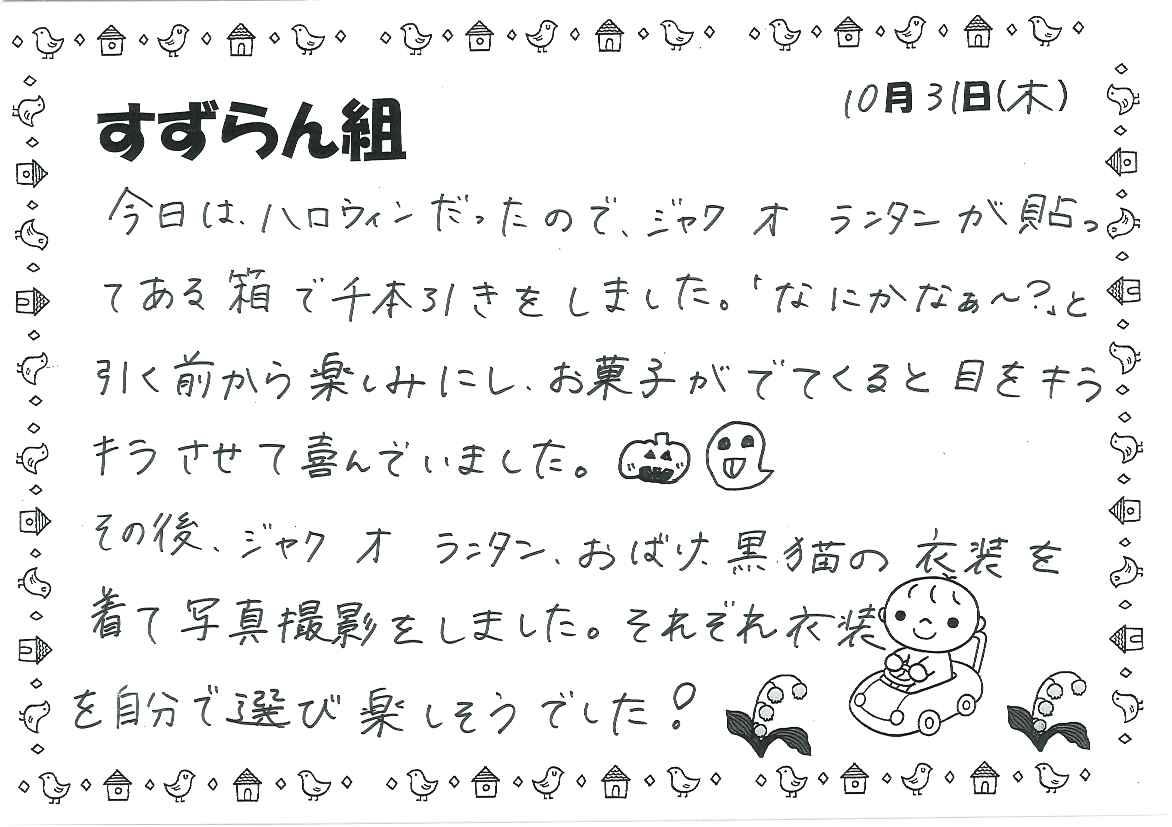 10月31日(木)
すずらん組
今日は、ハロウィンだったので、ジャク オ ランタンが貼っ
てある箱で千本引きをしました。「なにかなぁ〜?」と
引く前から楽しみにし、お菓子がでてくると目をキラ
キラさせて喜んでいました。
その後、ジャク オ ランタン、おばけ、黒猫の衣装を
着て写真撮影をしました。それぞれ衣装
を自分で選び楽しそうでした!